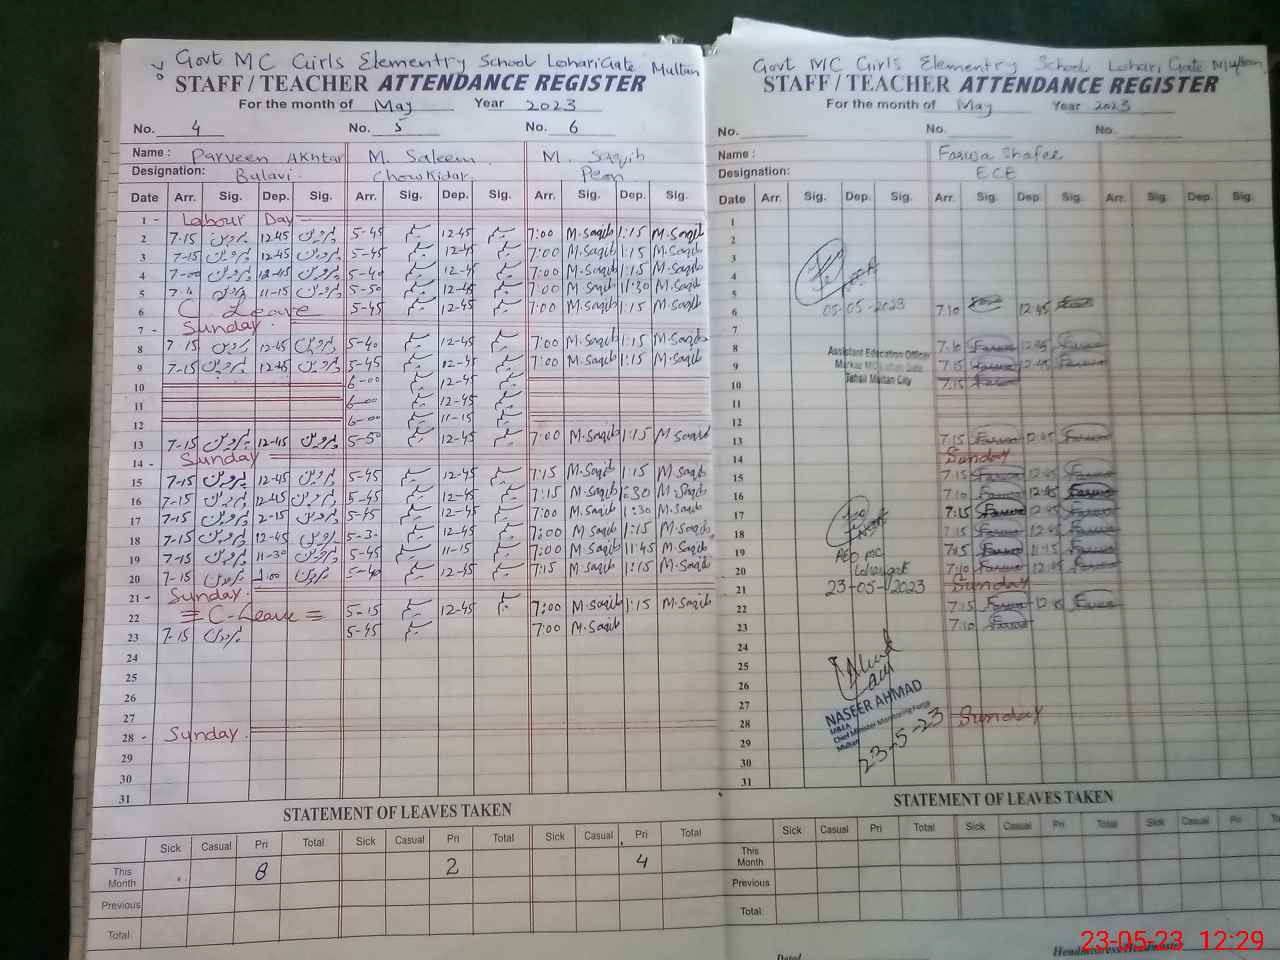 Govt MC Girls Elementry School LohariGate Multan
STAFF / TEACHER ATTENDANCE REGISTER
For the month of May Year 2023
No. 4 No. 5 No. 6
Name : Parveen Akhtar M. Saleem M. Saqib
Designation: Bulavi Chowkidar Peon
Date Arr. Sig. Dep. Sig. Arr. Sig. Dep. Sig. Arr. Sig. Dep. Sig.
1 - Labour Day
2 7-15 پروین 12-45 پروین 5-45 12-45 7:00 M.Saqib 1:15 M.Saqib
3 7-15 پروین 12-45 پروین 5-45 12-45 7:00 M.Saqib 1:15 M.Saqib
4 7-00 پروین 12-45 پروین 5-40 12-45 7:00 M.Saqib 1:15 M.Saqib
5 پروین 11-15 پروین 5-50 12-45 7:00 M.Saqib 11:30 M.Saqib
6 C Leave 5-45 12-45 7:00 M.Saqib 1:15 M.Saqib
7 - Sunday
8 7-15 پروین 12-45 پروین 5-40 12-45 7:00 M.Saqib 1:15 M.Saqib
9 7-15 پروین 12-45 پروین 5-45 12-45 7:00 M.Saqib 1:15 M.Saqib
10 6-00 12-45
11 6-00 12-45
12 6-00 11-15
13 7-15 پروین 12-45 پروین 5-50 12-45 7:00 M.Saqib 1:15 M Saqib
14 - Sunday
15 7-15 پروین 12-45 پروین 5-45 12-45 7:15 M.Saqib 1:15 M.Saqib
16 7-15 پروین 12-45 پروین 5-45 12-45 7:15 M.Saqib 1:30 M.Saqib
17 7-15 پروین 2-15 پروین 5-45 12-45 7:00 M.Saqib 1:30 M.Saqib
18 7-15 پروین 12-45 پروین 5-30 12-45 7:00 M Saqib 1:15 M.Saqib
19 7-15 پروین 11-30 پروین 5-45 11-15 7:00 M Saqib 11:45 M.Saqib
20 7-15 پروین 1:00 پروین 5-40 12-45 7:15 M Saqib 1:15 M.Saqib
21 - Sunday
22 C-Leave 5-15 12-45 7:00 M.Saqib 1:15 M.Saqib
23 7-15 پروین 5-45 7:00 M.Saqib
24
25
26
27
28 - Sunday
29
30
31
STATEMENT OF LEAVES TAKEN
Sick Casual Pri Total Sick Casual Pri Total Sick Casual Pri Total
This Month 8 2 4
Previous
Total
Govt MC Girls Elementry School Lohari Gate Multan
STAFF / TEACHER ATTENDANCE REGISTER
For the month of May Year 2023
No. No. No.
Name : Farwa Shafee
Designation: ECE
Date Arr. Sig. Dep. Sig. Arr. Sig. Dep Sig. Arr. Sig. Dep. Sig.
1
2
3
4
5
6 05-05-2023 7:10 12:45
7
8 Assistant Education Officer 7:10 Farwa 12:45 Farwa
9 Markaz 7:15 Farwa 12:45 Farwa
10 Tehsil Multan City 7:15 Farwa
11
12
13 7:15 Farwa 12:45 Farwa
14 Sunday
15 7:15 Farwa 12:45 Farwa
16 7:10 Farwa 12:45 Farwa
17 7:15 Farwa 12:45 Farwa
18 7:15 Farwa 12:45 Farwa
19 AEO MC 7:15 Farwa 11:15 Farwa
20 Loharigate 7:10 Farwa 12:45 Farwa
21 23-05-2023 Sunday
22 7:15 Farwa 12:45 Farwa
23 7:10 Farwa
24
25
26
27 NASEER AHMAD
28 MEA Sunday
Chief Minister Monitoring Force
29 Multan
23-5-23
30
31
STATEMENT OF LEAVES TAKEN
Sick Casual Pri Total Sick Casual Pri Total Sick Casual Pri Total
This Month
Previous
Total
Dated
Headmistress/Headmaster
23-05-23 12:29